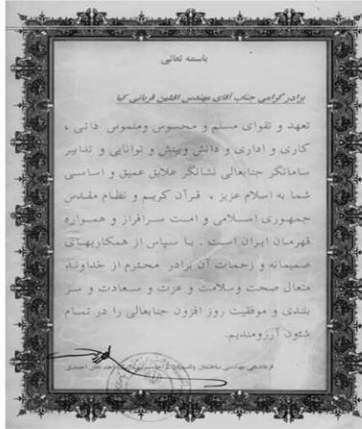 باسمه تعالی
برادر گرامی جناب آقای مهندس افشین قربانی کیا
تعهد و تقوای مسلم و محسوس وملموس ذاتی ،
کاری و اداری و دانش وبینش و توانایی و تدابیر
سامانگر جنابعالی نشانگر علایق عمیق و اساسی
شما به اسلام عزیز ، قرآن کریم و نظام مقدس
جمهوری اسلامی و امت سرافراز و همواره
قهرمان ایران است . با سپاس از همکاریهای
صمیمانه و زحمات آن برادر محترم از خداوند
متعال صحت وسلامت و عزت و سعادت و سر
بلندی و موفقیت روز افزون جنابعالی را در تمام
شئون آرزومندیم.
فرماندهی مهندسی ساختمان وتاسیسات